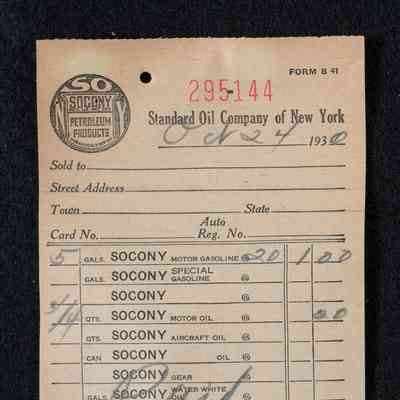 FORM B 41
SO
SOCONY
PETROLEUM
PRODUCTS
295144
Standard Oil Company of New York
Oct 24 1930
Sold to
Street Address
Town State
Card No. Auto Reg. No.
5 GALS. SOCONY MOTOR GASOLINE @ 20 1 00
GALS. SOCONY SPECIAL GASOLINE @
SOCONY @
QTS. SOCONY MOTOR OIL @ 00
QTS. SOCONY AIRCRAFT OIL @
CAN SOCONY OIL @
SOCONY GEAR @
GALS. SOCONY WATER WHITE @